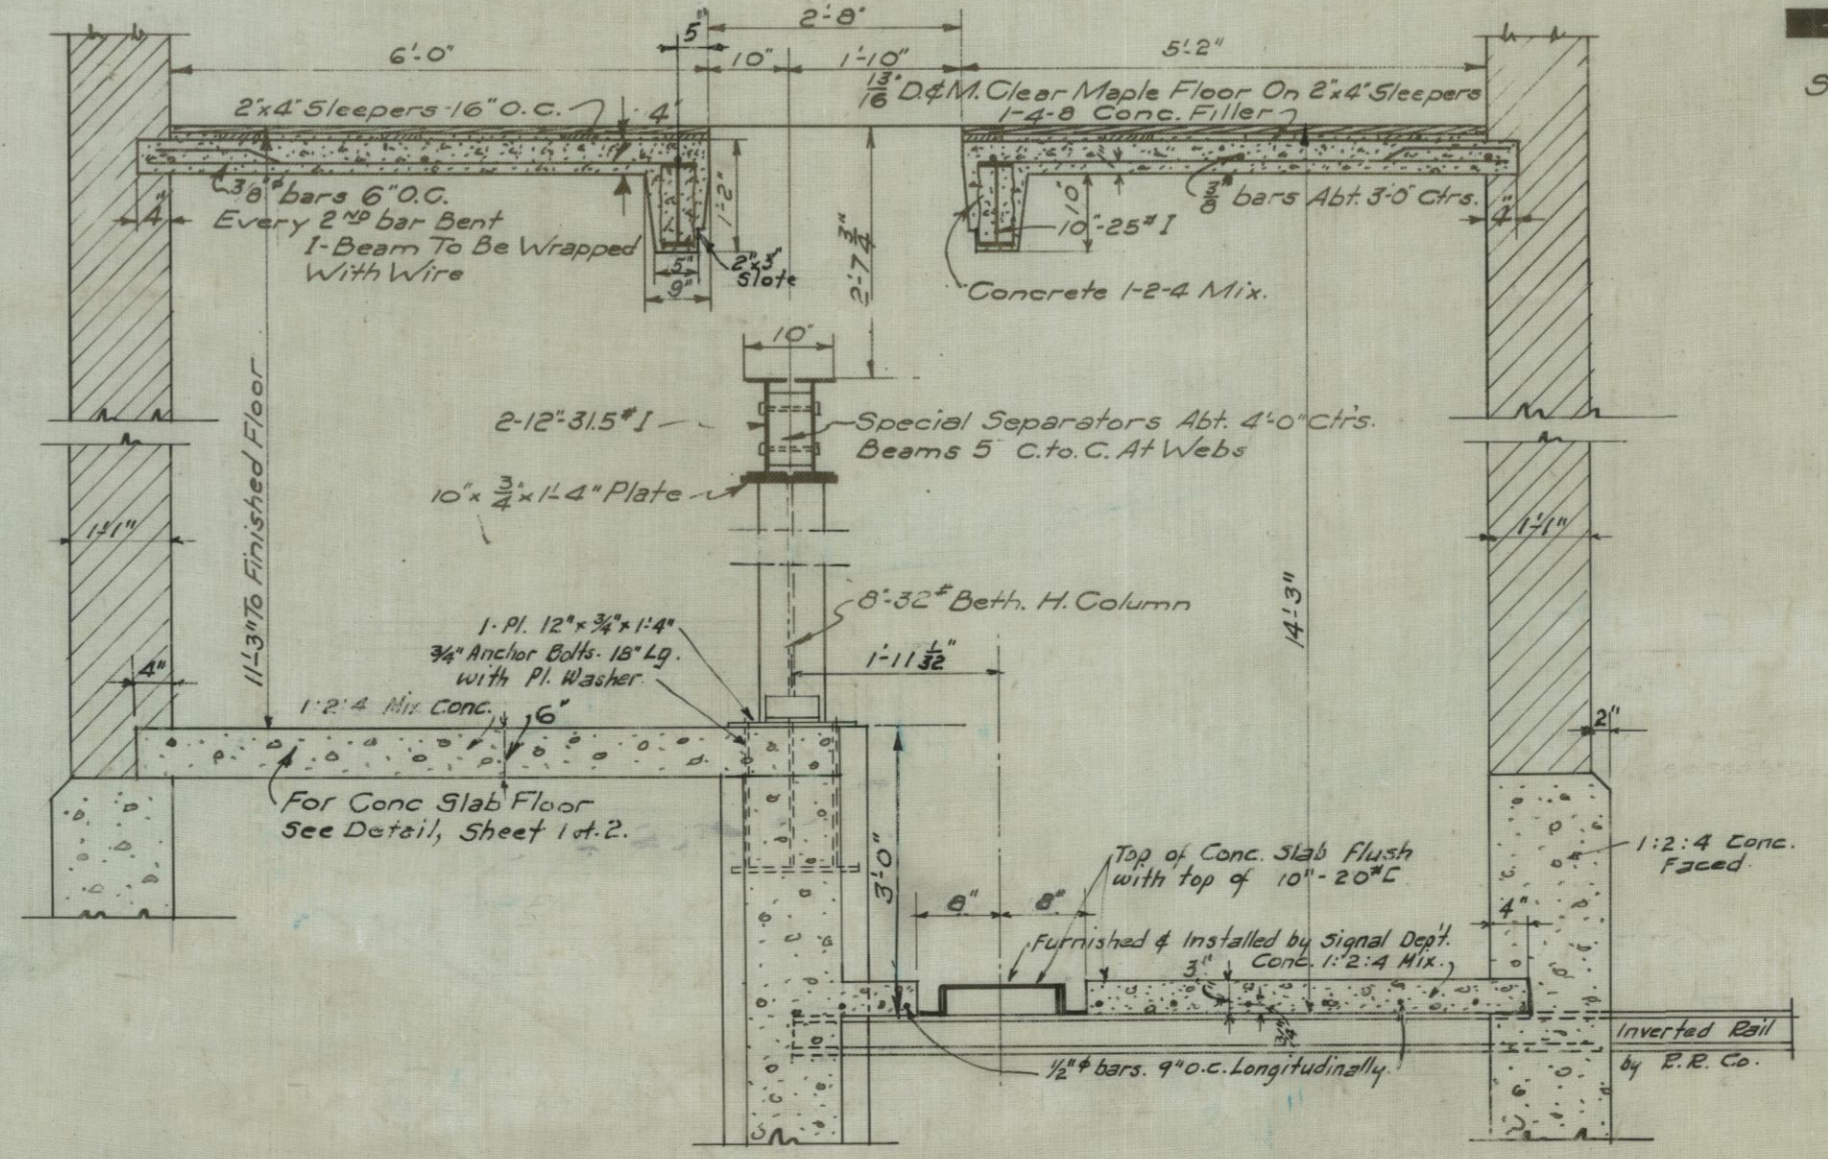 2'-8"
5"
6'-0"
10"
1'-10"
5'-2"
13/16" D.&M. Clear Maple Floor On 2"x4" Sleepers
2"x4" Sleepers-16" O.C.
4"
1-4-8 Conc. Filler
3/8"ø bars 6" O.C.
Every 2ND bar Bent
4"
1'-2"
I-Beam To Be Wrapped
With Wire
5"
9"
2"x3"
Slote
2'-7 3/4"
10"
3/8" bars Abt. 3'-0" Ctrs.
4"
10"-25# I
Concrete 1-2-4 Mix.
10"
2-12"-31.5# I
Special Separators Abt. 4'-0" Ctrs.
Beams 5" C. to. C. At Webs
10"x 3/4"x 1'-4" Plate
11'-3" To Finished Floor
1'-1"
1'-1"
14'-3"
8"-32# Beth. H. Column
1-Pl. 12"x 3/4"x 1'-4"
3/4" Anchor Bolts-18" Lg.
with Pl. Washer
1'-11 1/32"
4"
1:2:4 Mix Conc.
6"
2"
For Conc Slab Floor
See Detail, Sheet 1 of 2.
3'-0"
Top of Conc. Slab Flush
with top of 10"-20# C
1:2:4 Conc.
Faced
8"
8"
4"
Furnished & Installed by Signal Dep't.
Conc. 1:2:4 Mix.
3"
3/4"
1/2"ø bars. 9" O.C. Longitudinally
Inverted Rail
by R.R. Co.